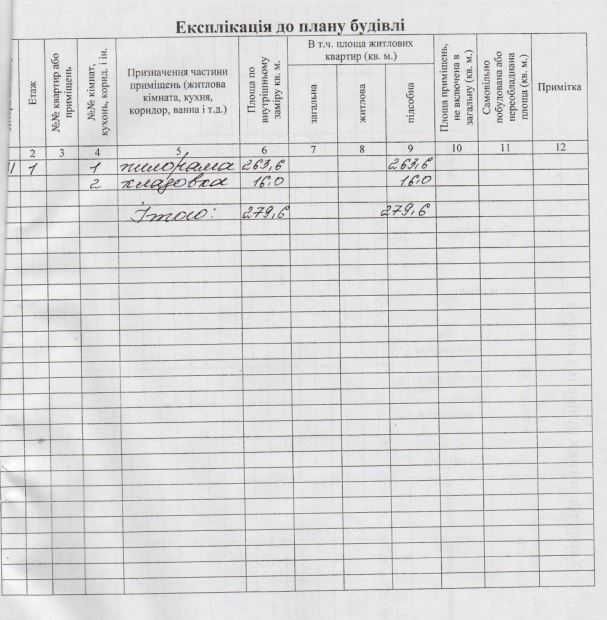 Експлікація до плану будівлі
Етаж
№№ квартир або приміщень
№№ кімнат, кухонь, корид. і ін.
Призначення частини приміщень (житлова кімната, кухня, коридор, ванна і т.д.)
Площа по внутрішньому заміру кв. м.
В т.ч. площа житлових квартир (кв. м.)
загальна
житлова
підсобна
Площа приміщень, не включена в загальну (кв. м.)
Самовільно побудована або переобладнана площа (кв. м.)
Примітка
2 3 4 5 6 7 8 9 10 11 12
1 1 пилорама 263,6 263,6
2 кладовка 16.0 16.0
Ітого: 279,6 279,6